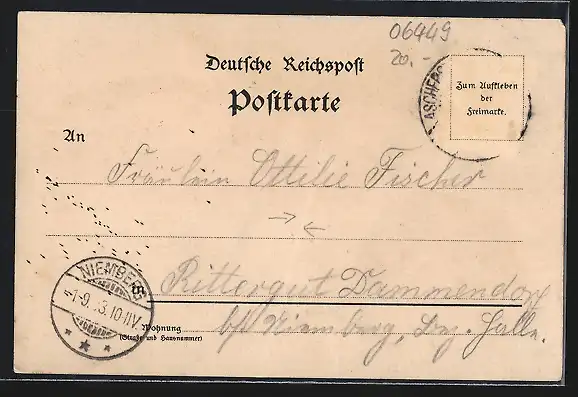 06449
20.-
Deutsche Reichspost
Postkarte
ASCHERS
Zum Aufkleben
der
Freimarke.
An
Fräulein Ottilie Fischer
Rittergut Dammendorf
b/ Niemberg, Bz. Halle.
NIEMBERG
-1-9. 3.10-11V.
Wohnung
(Straße und Hausnummer)